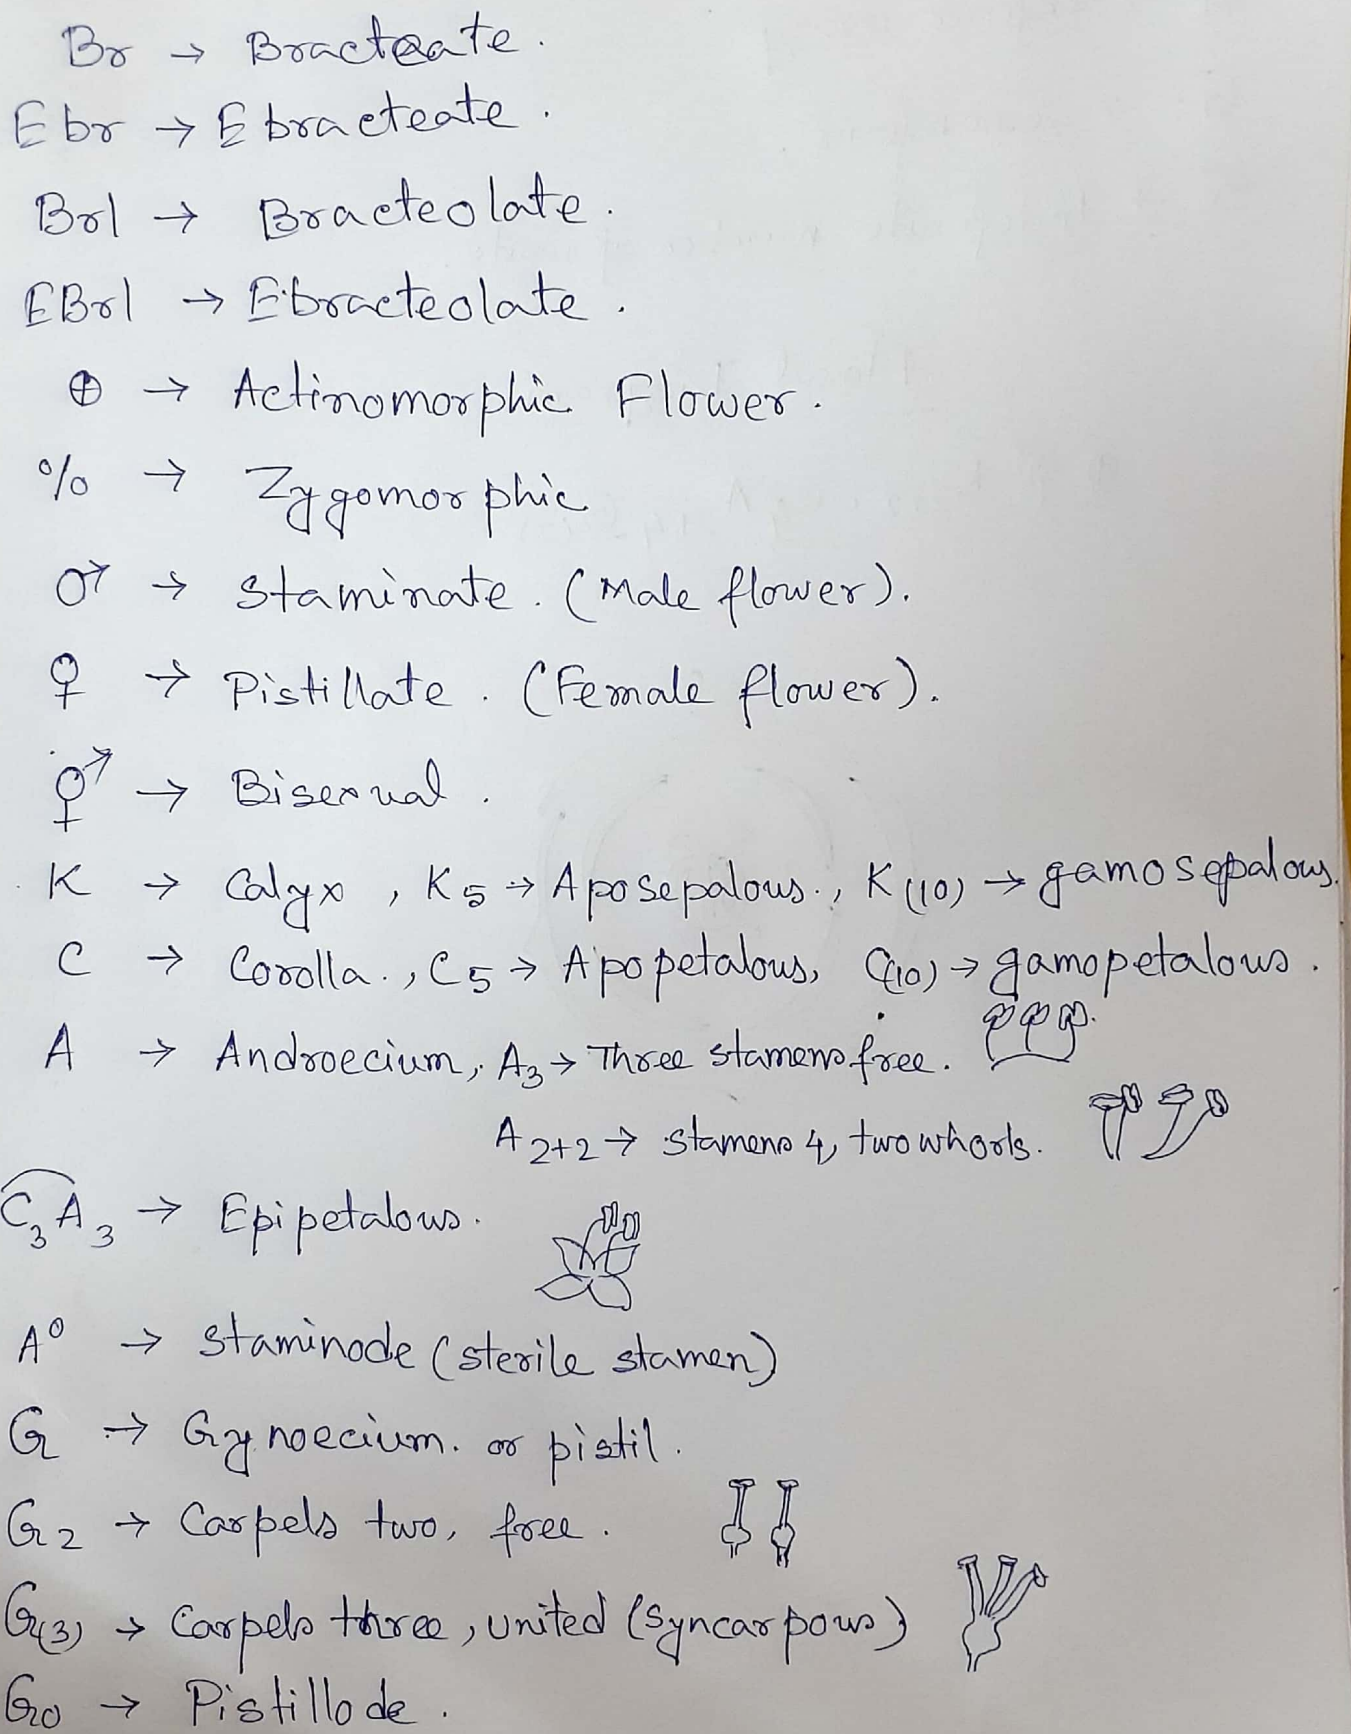 Br → Bracteate.
Ebr → Ebracteate.
Brl → Bracteolate.
EBrl → Ebracteolate.
⊕ → Actinomorphic Flower.
% → Zygomorphic
♂ → Staminate. (Male flower).
♀ → Pistillate. (Female flower).
⚥ → Bisexual.
K → Calyx, K5 → Aposepalous., K(10) → gamosepalous.
C → Corolla., C5 → Apopetalous, C(10) → gamopetalous.
A → Androecium, A3 → Three stamens free.
A2+2 → Stamens 4, two whorls.
C3A3 → Epipetalous.
A⁰ → Staminode (sterile stamen)
G → Gynoecium. or pistil.
G2 → Carpels two, free.
G(3) → Carpels three, united (Syncarpous)
G0 → Pistillode.